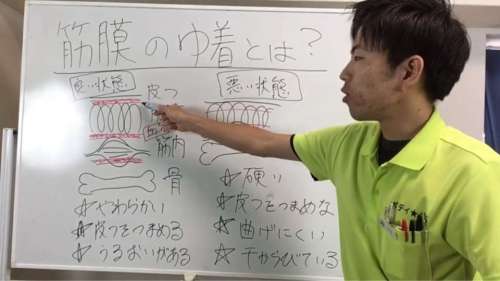 筋膜のゆ着とは?
良い状態 悪い状態
皮フ
筋肉
骨
☆やわらかい ☆硬い
☆皮フをつまめる ☆皮フをつまめな
☆うるおいがある ☆曲げにくい
☆干からびている